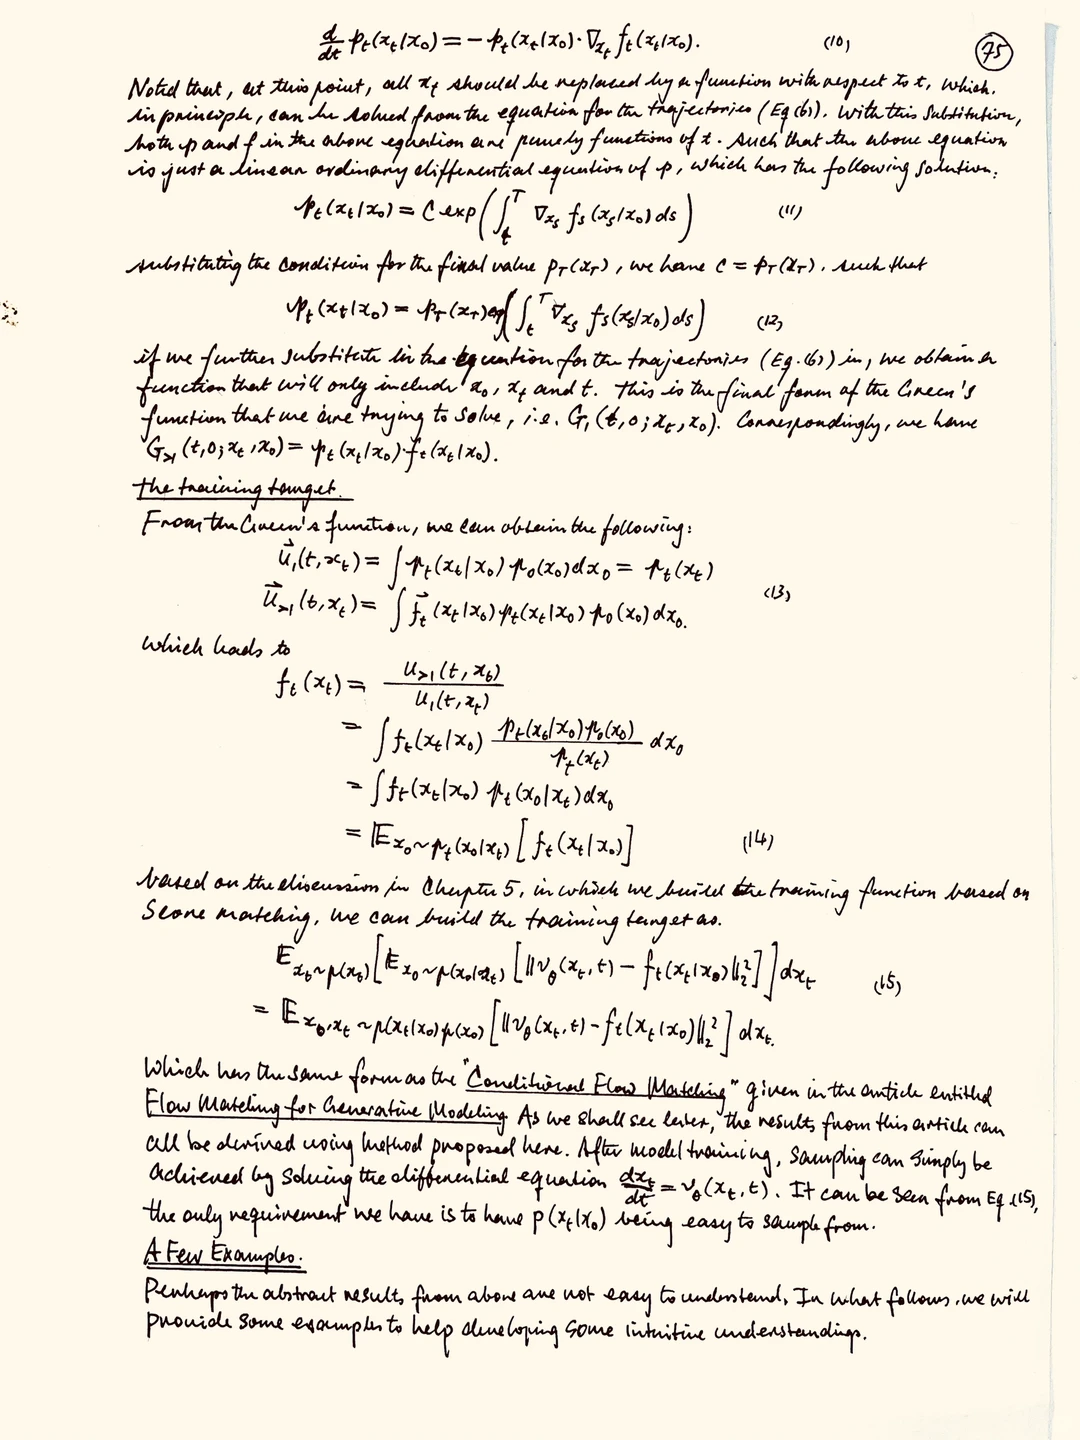 d/dt p_t(x_t|x_0) = - p_t(x_t|x_0) · ∇_{x_t} f_t(x_t|x_0). (10) 75
Noted that, at this point, all x_t should be replaced by a function with respect to t, which.
in principle, can be solved from the equation for the trajectories (Eq(6)). With this substitution,
both p and f in the above equation are purely functions of t. Such that the above equation
is just a linear ordinary differential equation of p, which has the following solution:
p_t(x_t|x_0) = C exp( ∫_t^T ∇_{x_s} f_s(x_s|x_0) ds ) (11)
substituting the condition for the final value p_T(x_T), we have C = p_T(x_T). such that
p_t(x_t|x_0) = p_T(x_T) exp( ∫_t^T ∇_{x_s} f_s(x_s|x_0) ds ) (12)
if we further substitute in the equation for the trajectories (Eq.(6)) in, we obtain a
function that will only include x_0, x_t and t. This is the final form of the Green's
function that we are trying to solve, i.e. G_1(t,0; x_t, x_0). Correspondingly, we have
G_{>1}(t,0; x_t, x_0) = p_t(x_t|x_0) · f_t(x_t|x_0).
the training target.
From the Green's function, we can obtain the following:
u⃗_1(t,x_t) = ∫ p_t(x_t|x_0) p_0(x_0) dx_0 = p_t(x_t)
u⃗_{>1}(t,x_t) = ∫ f⃗_t(x_t|x_0) p_t(x_t|x_0) p_0(x_0) dx_0. (13)
which leads to
f_t(x_t) = u_{>1}(t,x_t) / u_1(t,x_t)
= ∫ f_t(x_t|x_0) p_t(x_t|x_0) p_0(x_0) / p_t(x_t) dx_0
= ∫ f_t(x_t|x_0) p_t(x_0|x_t) dx_0
= 𝔼_{x_0~p_t(x_0|x_t)} [ f_t(x_t|x_0) ] (14)
based on the discussion in Chapter 5, in which we build the training function based on
Score matching, we can build the training target as.
𝔼_{x_t~p(x_t)} [ 𝔼_{x_0~p(x_0|x_t)} [ ||v_θ(x_t,t) - f_t(x_t|x_0)||_2^2 ] ] dx_t (15)
= 𝔼_{x_0,x_t~p(x_t|x_0)p(x_0)} [ ||v_θ(x_t,t) - f_t(x_t|x_0)||_2^2 ] dx_t.
Which has the same form as the "Conditional Flow Matching" given in the article entitled
Flow Matching for Generative Modeling. As we shall see later, the results from this article can
all be derived using method proposed here. After model training, sampling can simply be
achieved by solving the differential equation dx_t/dt = v_θ(x_t,t). It can be seen from Eq.(15),
the only requirement we have is to have p(x_t|x_0) being easy to sample from.
A Few Examples.
Perhaps the abstract results from above are not easy to understand. In what follows, we will
provide some examples to help developing some intuitive understandings.